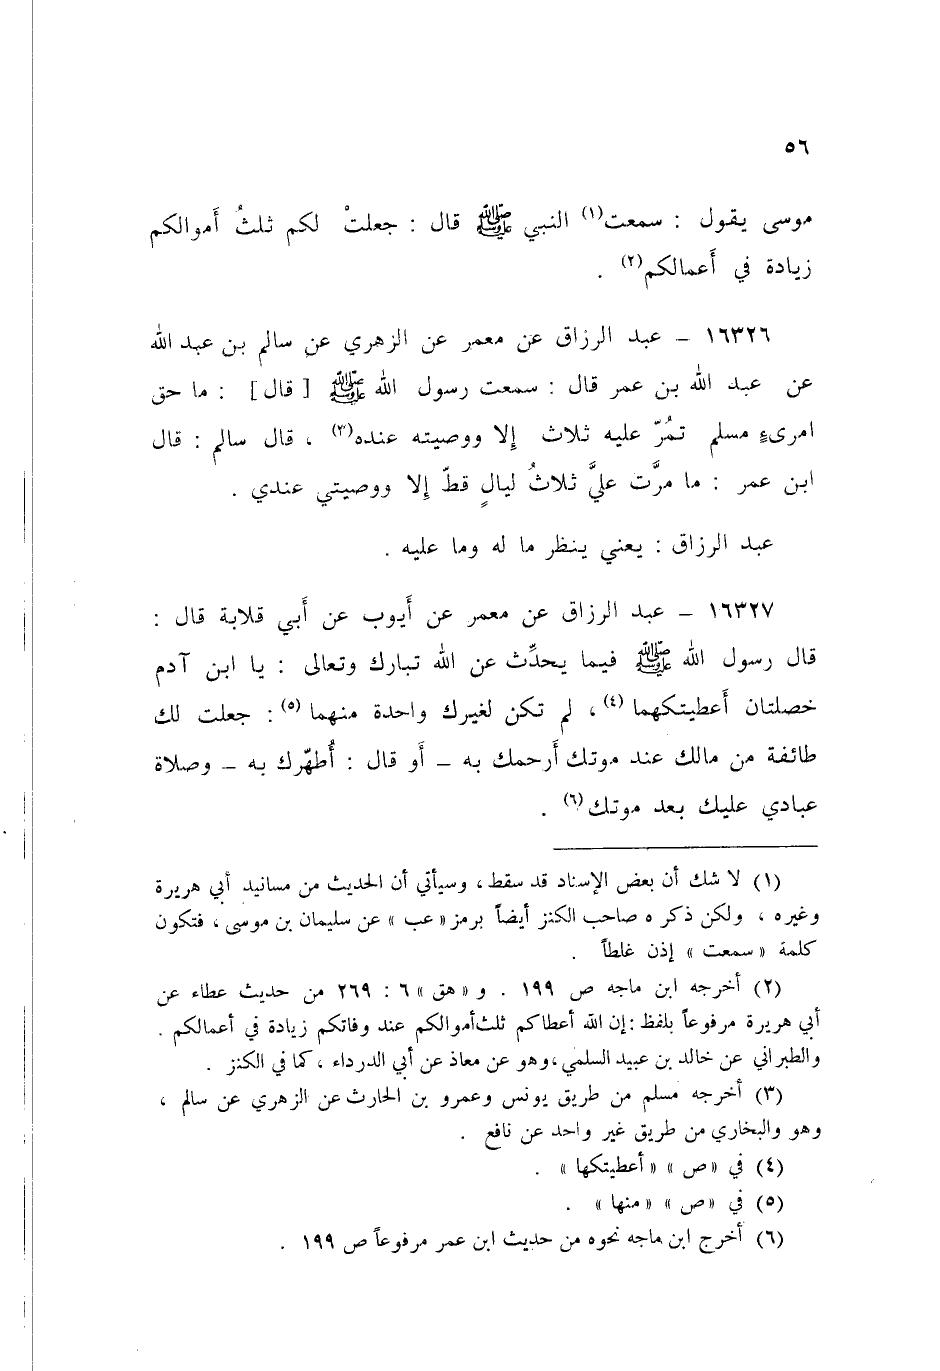 ٥٦
موسى يقول : سمعت(١) النبي ﷺ قال : جعلتْ لكم ثلثُ أَموالكم
زيادة في أَعمالكم(٢) .
١٦٣٢٦ – عبد الرزاق عن معمر عن الزهري عن سالم بن عبد الله
عن عبد الله بن عمر قال : سمعت رسول الله ﷺ [ قال ] : ما حق
امرىءٍ مسلم تمُرّ عليه ثلاث إلا ووصيته عنده(٣) ، قال سالم : قال
ابن عمر : ما مرَّت عليَّ ثلاثُ ليالٍ قطّ إلا ووصيتي عندي .
عبد الرزاق : يعني ينظر ما له وما عليه .
١٦٣٢٧ – عبد الرزاق عن معمر عن أَيوب عن أَبي قلابة قال :
قال رسول الله ﷺ فيما يحدِّث عن الله تبارك وتعالى : يا ابن آدم
خصلتان أَعطيتكهما (٤) ، لم تكن لغيرك واحدة منهما (٥) : جعلت لك
طائفة من مالك عند موتك أَرحمك به – أَو قال : أُطهّرك به – وصلاة
عبادي عليك بعد موتك(٦) .
(١) لا شك أن بعض الإسناد قد سقط ، وسيأتي أن الحديث من مسانيد أبي هريرة
وغيره ، ولكن ذكر ه صاحب الكنز أيضاً برمز «عب» عن سليمان بن موسى ، فتكون
كلمة « سمعت » إذن غلطاً .
(٢) أخرجه ابن ماجه ص ١٩٩ . و «هق» ٦ : ٢٦٩ من حديث عطاء عن
أبي هريرة مرفوعاً بلفظ : إن الله أعطاكم ثلث أموالكم عند وفاتكم زيادة في أعمالكم .
والطبراني عن خالد بن عبيد السلمي ، وهو عن معاذ عن أبي الدرداء ، كما في الكنز .
(٣) أخرجه مسلم من طريق يونس وعمرو بن الحارث عن الزهري عن سالم ،
وهو والبخاري من طريق غير واحد عن نافع .
(٤) في «ص» «أعطيتكها» .
(٥) في «ص» «منها» .
(٦) أخرج ابن ماجه نحوه من حديث ابن عمر مرفوعاً ص ١٩٩ .